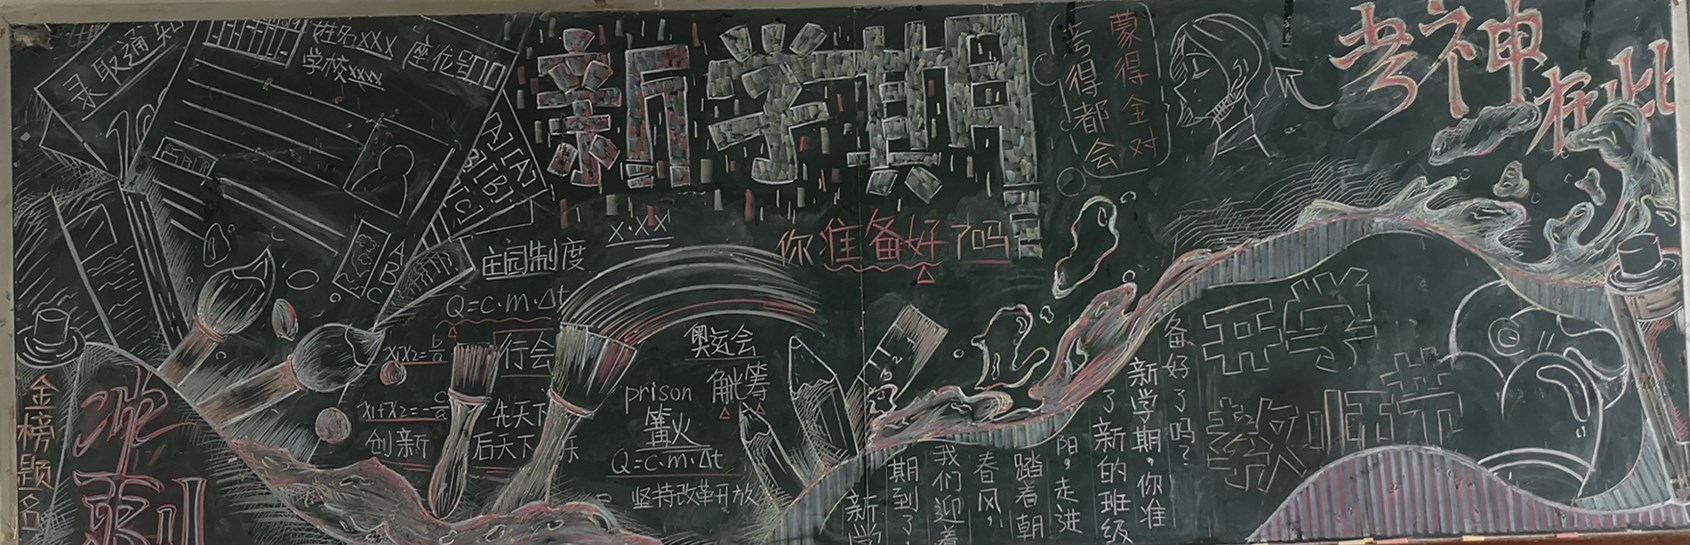 录取通知
姓名XXX
学校XXXX
座位号
[A]
[B]
[C]
A
B
C
新学期
你准备好了吗
蒙得全对
考得都会
考神
在此
庄园制度
X·XX
Q=c·m·Δt
行会
创新
先天下
后天下 乐
奥运会
prison
觥筹
篝火
Q=c·m·Δt
坚持改革开放
金榜题名
冲刺
新学
期到了,
我们迎着
春风,
踏着朝
阳,走进
了新的班级
新学期,你准
备好了吗?
开学
教师节